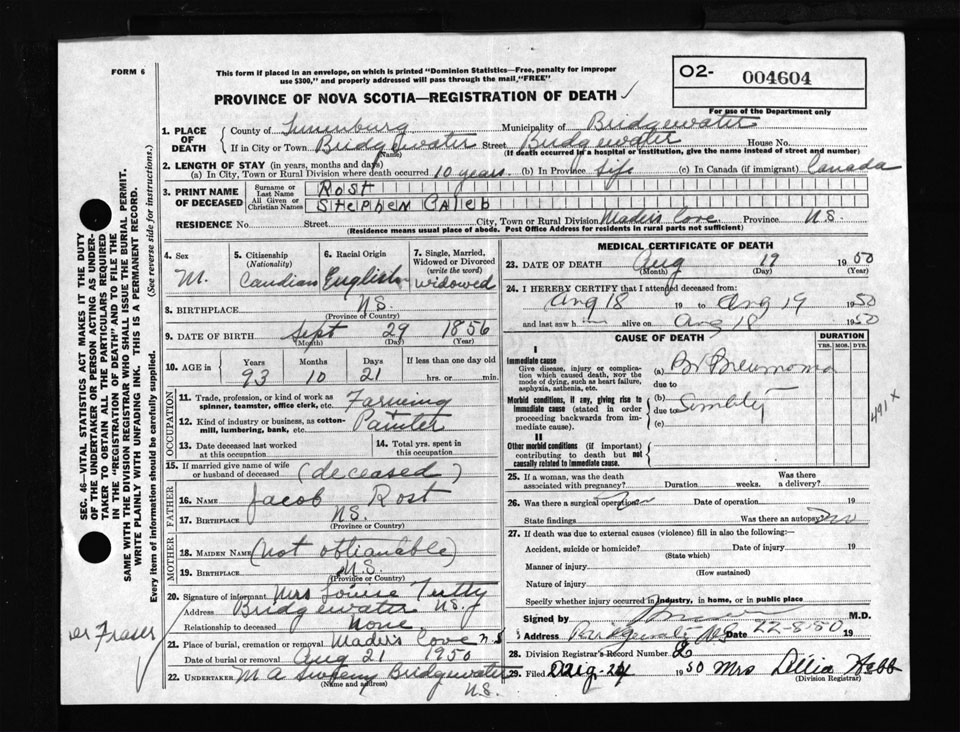 FORM 6
This form if placed in an envelope, on which is printed "Dominion Statistics—Free, penalty for improper
use $300," and properly addressed will pass through the mail, "FREE"
O2- 004604
For use of the Department only
PROVINCE OF NOVA SCOTIA—REGISTRATION OF DEATH ✓
1. PLACE OF DEATH
County of Lunenburg Municipality of Bridgewater
If in City or Town Bridgewater Street Bridgewater House No.
(Name) (If death occurred in a hospital or institution, give the name instead of street and number)
2. LENGTH OF STAY (in years, months and days)
(a) In City, Town or Rural Division where death occurred 10 years. (b) In Province life (c) In Canada (if immigrant) Canada
3. PRINT NAME OF DECEASED
Surname or Last Name Rost
All Given or Christian Names Stephen Caleb
RESIDENCE No. Street City, Town or Rural Division Maders Cove Province N.S.
(Residence means usual place of abode. Post Office Address for residents in rural parts not sufficient)
4. Sex M.
5. Citizenship (Nationality) Candian
6. Racial Origin English
7. Single, Married, Widowed or Divorced (write the word) widowed
8. BIRTHPLACE N.S.
(Province or Country)
9. DATE OF BIRTH Sept 29 1856
(Month) (Day) (Year)
10. AGE in Years 93 Months 10 Days 21 If less than one day old hrs. or min.
OCCUPATION
11. Trade, profession, or kind of work as spinner, teamster, office clerk, etc. Farming
12. Kind of industry or business, as cotton-mill, lumbering, bank, etc. Painter
13. Date deceased last worked at this occupation
14. Total yrs. spent in this occupation
15. If married give name of wife or husband of deceased (deceased)
FATHER
16. NAME Jacob Rost
17. BIRTHPLACE N.S.
(Province or Country)
MOTHER
18. MAIDEN NAME (not obtianable)
19. BIRTHPLACE N.S.
(Province or Country)
20. Signature of informant Mrs Louise Tutty
Address Bridgewater N.S.
Relationship to deceased None
21. Place of burial, cremation or removal Maders Cove N S
Date of burial or removal Aug 21 1950
22. UNDERTAKER M A Sweeny Bridgewater
(Name and address) N.S.
MEDICAL CERTIFICATE OF DEATH
23. DATE OF DEATH Aug 19 1950
(Month) (Day) (Year)
24. I HEREBY CERTIFY that I attended deceased from:
Aug 18 19 to Aug 19 1950
and last saw him alive on Aug 18 1950
CAUSE OF DEATH
DURATION
YRS. MOS. DYS.
I
Immediate cause
Give disease, injury or complication which caused death, not the mode of dying, such as heart failure, asphyxia, asthenia, etc.
(a) Br Pneumonia
due to
Morbid conditions, if any, giving rise to immediate cause (stated in order proceeding backwards from immediate cause).
(b)
due to Senility
(c)
491 x
II
Other morbid conditions (if important) contributing to death but not causally related to immediate cause.
25. If a woman, was the death associated with pregnancy? Duration weeks. Was there a delivery?
26. Was there a surgical operation? Date of operation 19
State findings Was there an autopsy? no
27. If death was due to external causes (violence) fill in also the following:—
Accident, suicide or homicide? Date of injury 19
(State which)
Manner of injury
(How sustained)
Nature of injury
Specify whether injury occurred in industry, in home, or in public place
Signed by M.D.
Address Bridgewater NS Date 22-8-50 19
28. Division Registrar's Record Number
29. Filed Aug-24 1950 Mrs Dillia Webb
(Division Registrar)
SEC. 46—VITAL STATISTICS ACT MAKES IT THE DUTY
OF THE UNDERTAKER OR PERSON ACTING AS UNDER-
TAKER TO OBTAIN ALL THE PARTICULARS REQUIRED
IN THE "REGISTRATION OF DEATH" AND TO FILE THE
SAME WITH THE DIVISION REGISTRAR WHO SHALL ISSUE THE BURIAL PERMIT.
WRITE PLAINLY WITH UNFADING INK. THIS IS A PERMANENT RECORD.
Every item of information should be carefully supplied. (See reverse side for instructions.)
er Fraser